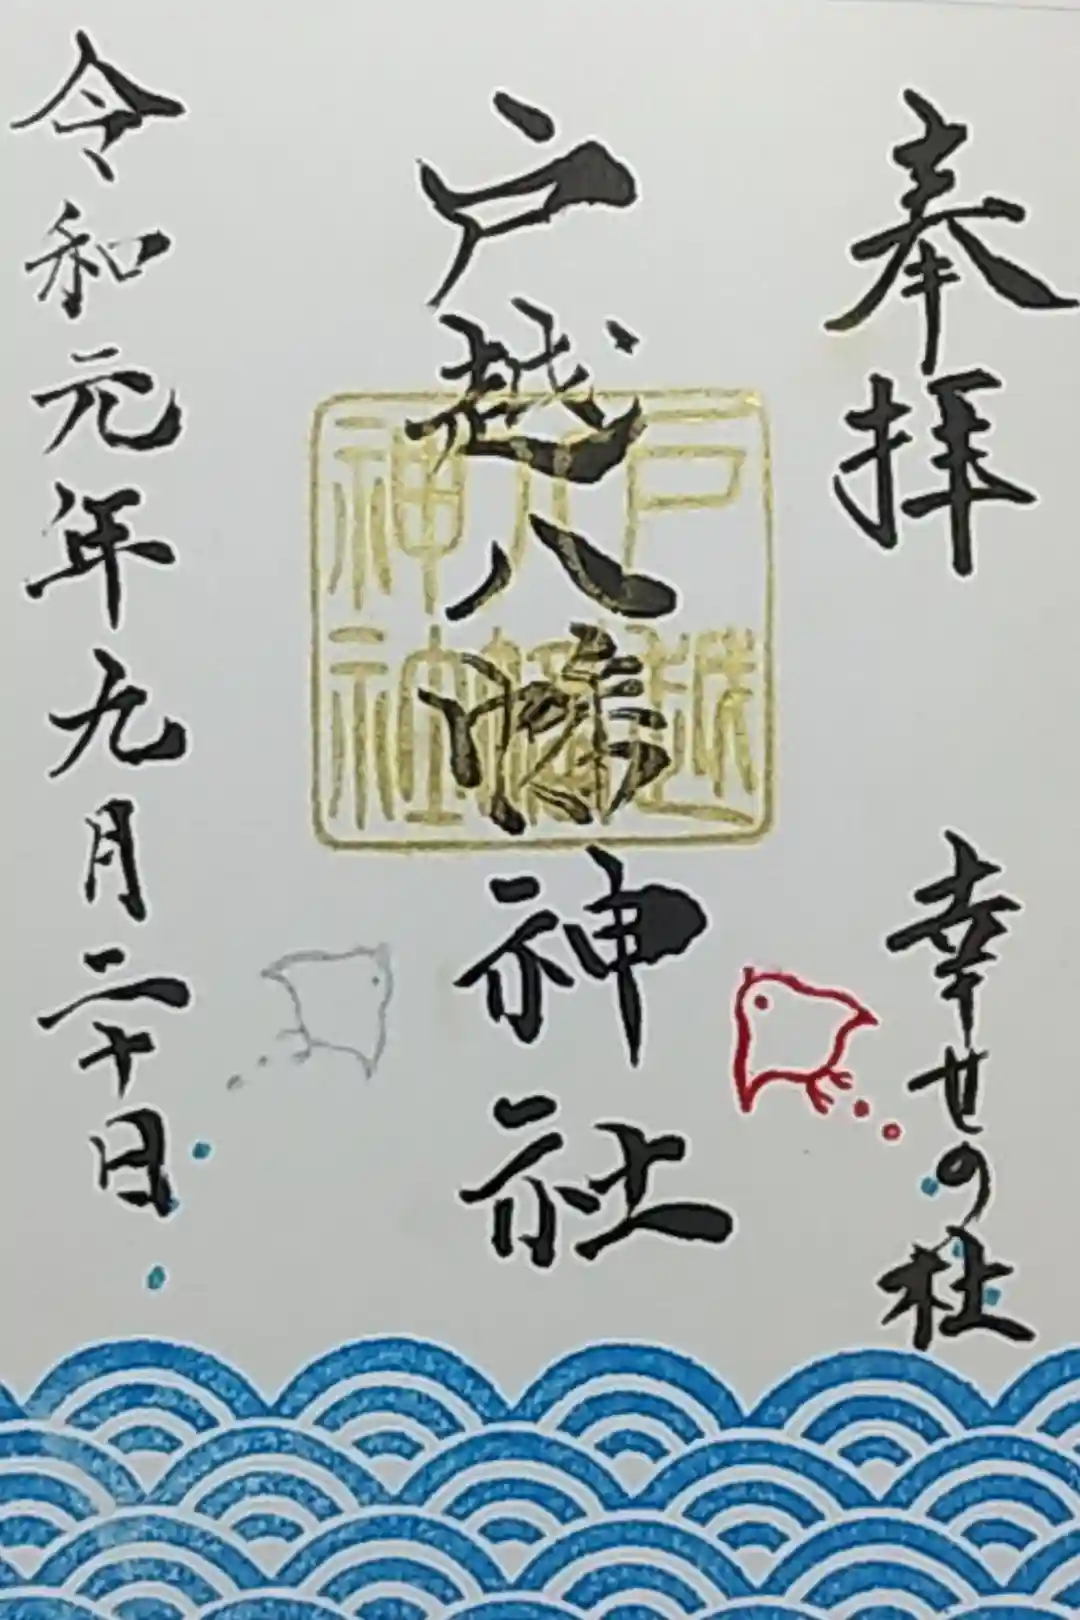 奉拝
幸せの杜
戸越八幡神社
戸越
八幡
神社
令和元年九月二十日